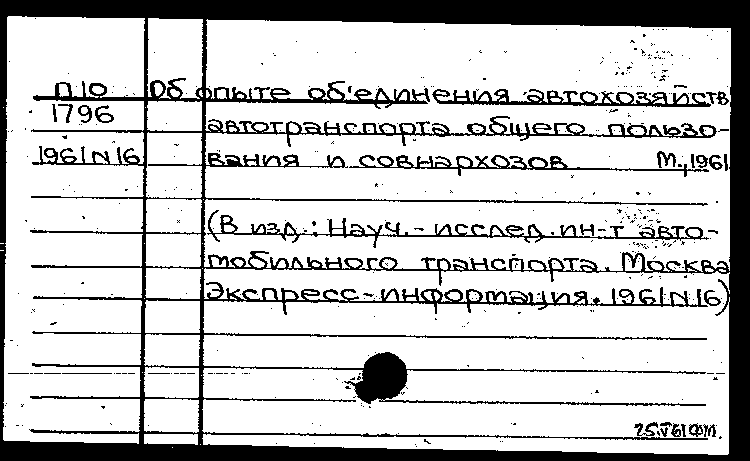 П10 Об опыте об'единения автохозяйств
1796
автотранспорта общего пользо-
1961 N 16 вания и совнархозов М., 1961
(В изд.: Науч.-исслед. ин-т авто-
мобильного транспорта. Москва
Экспресс-информация. 1961 N 16)
25.V 61 ФМ.